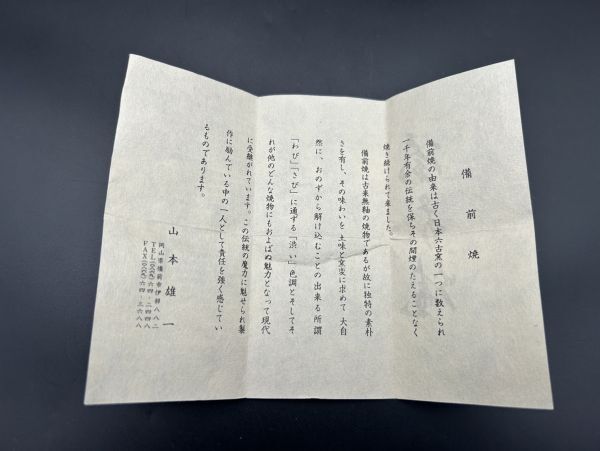 備前焼
備前焼の由来は古く日本六古窯の一つに数えられ
一千年有余の伝統を保ちその間煙のたえることなく
焼き続けられて来ました。
備前焼は古来無釉の焼物であるが故に独特の素朴
さを有し、その味わいを土味と窯変に求めて大自
然に、おのずから解け込むことの出来る所謂
「わび」「さび」に通ずる「渋い」色調とそしてそ
れが他のどんな焼物にもおよばぬ魅力となって現代
に受継がれています。この伝統の魔力に魅せられ製
作に励んでいる中の一人として責任を強く感じてい
るものであります。
山本雄一
岡山県備前市伊部八八二
TEL(〇八六九)六四-二四四八
FAX(〇八六九)六四-三六八八